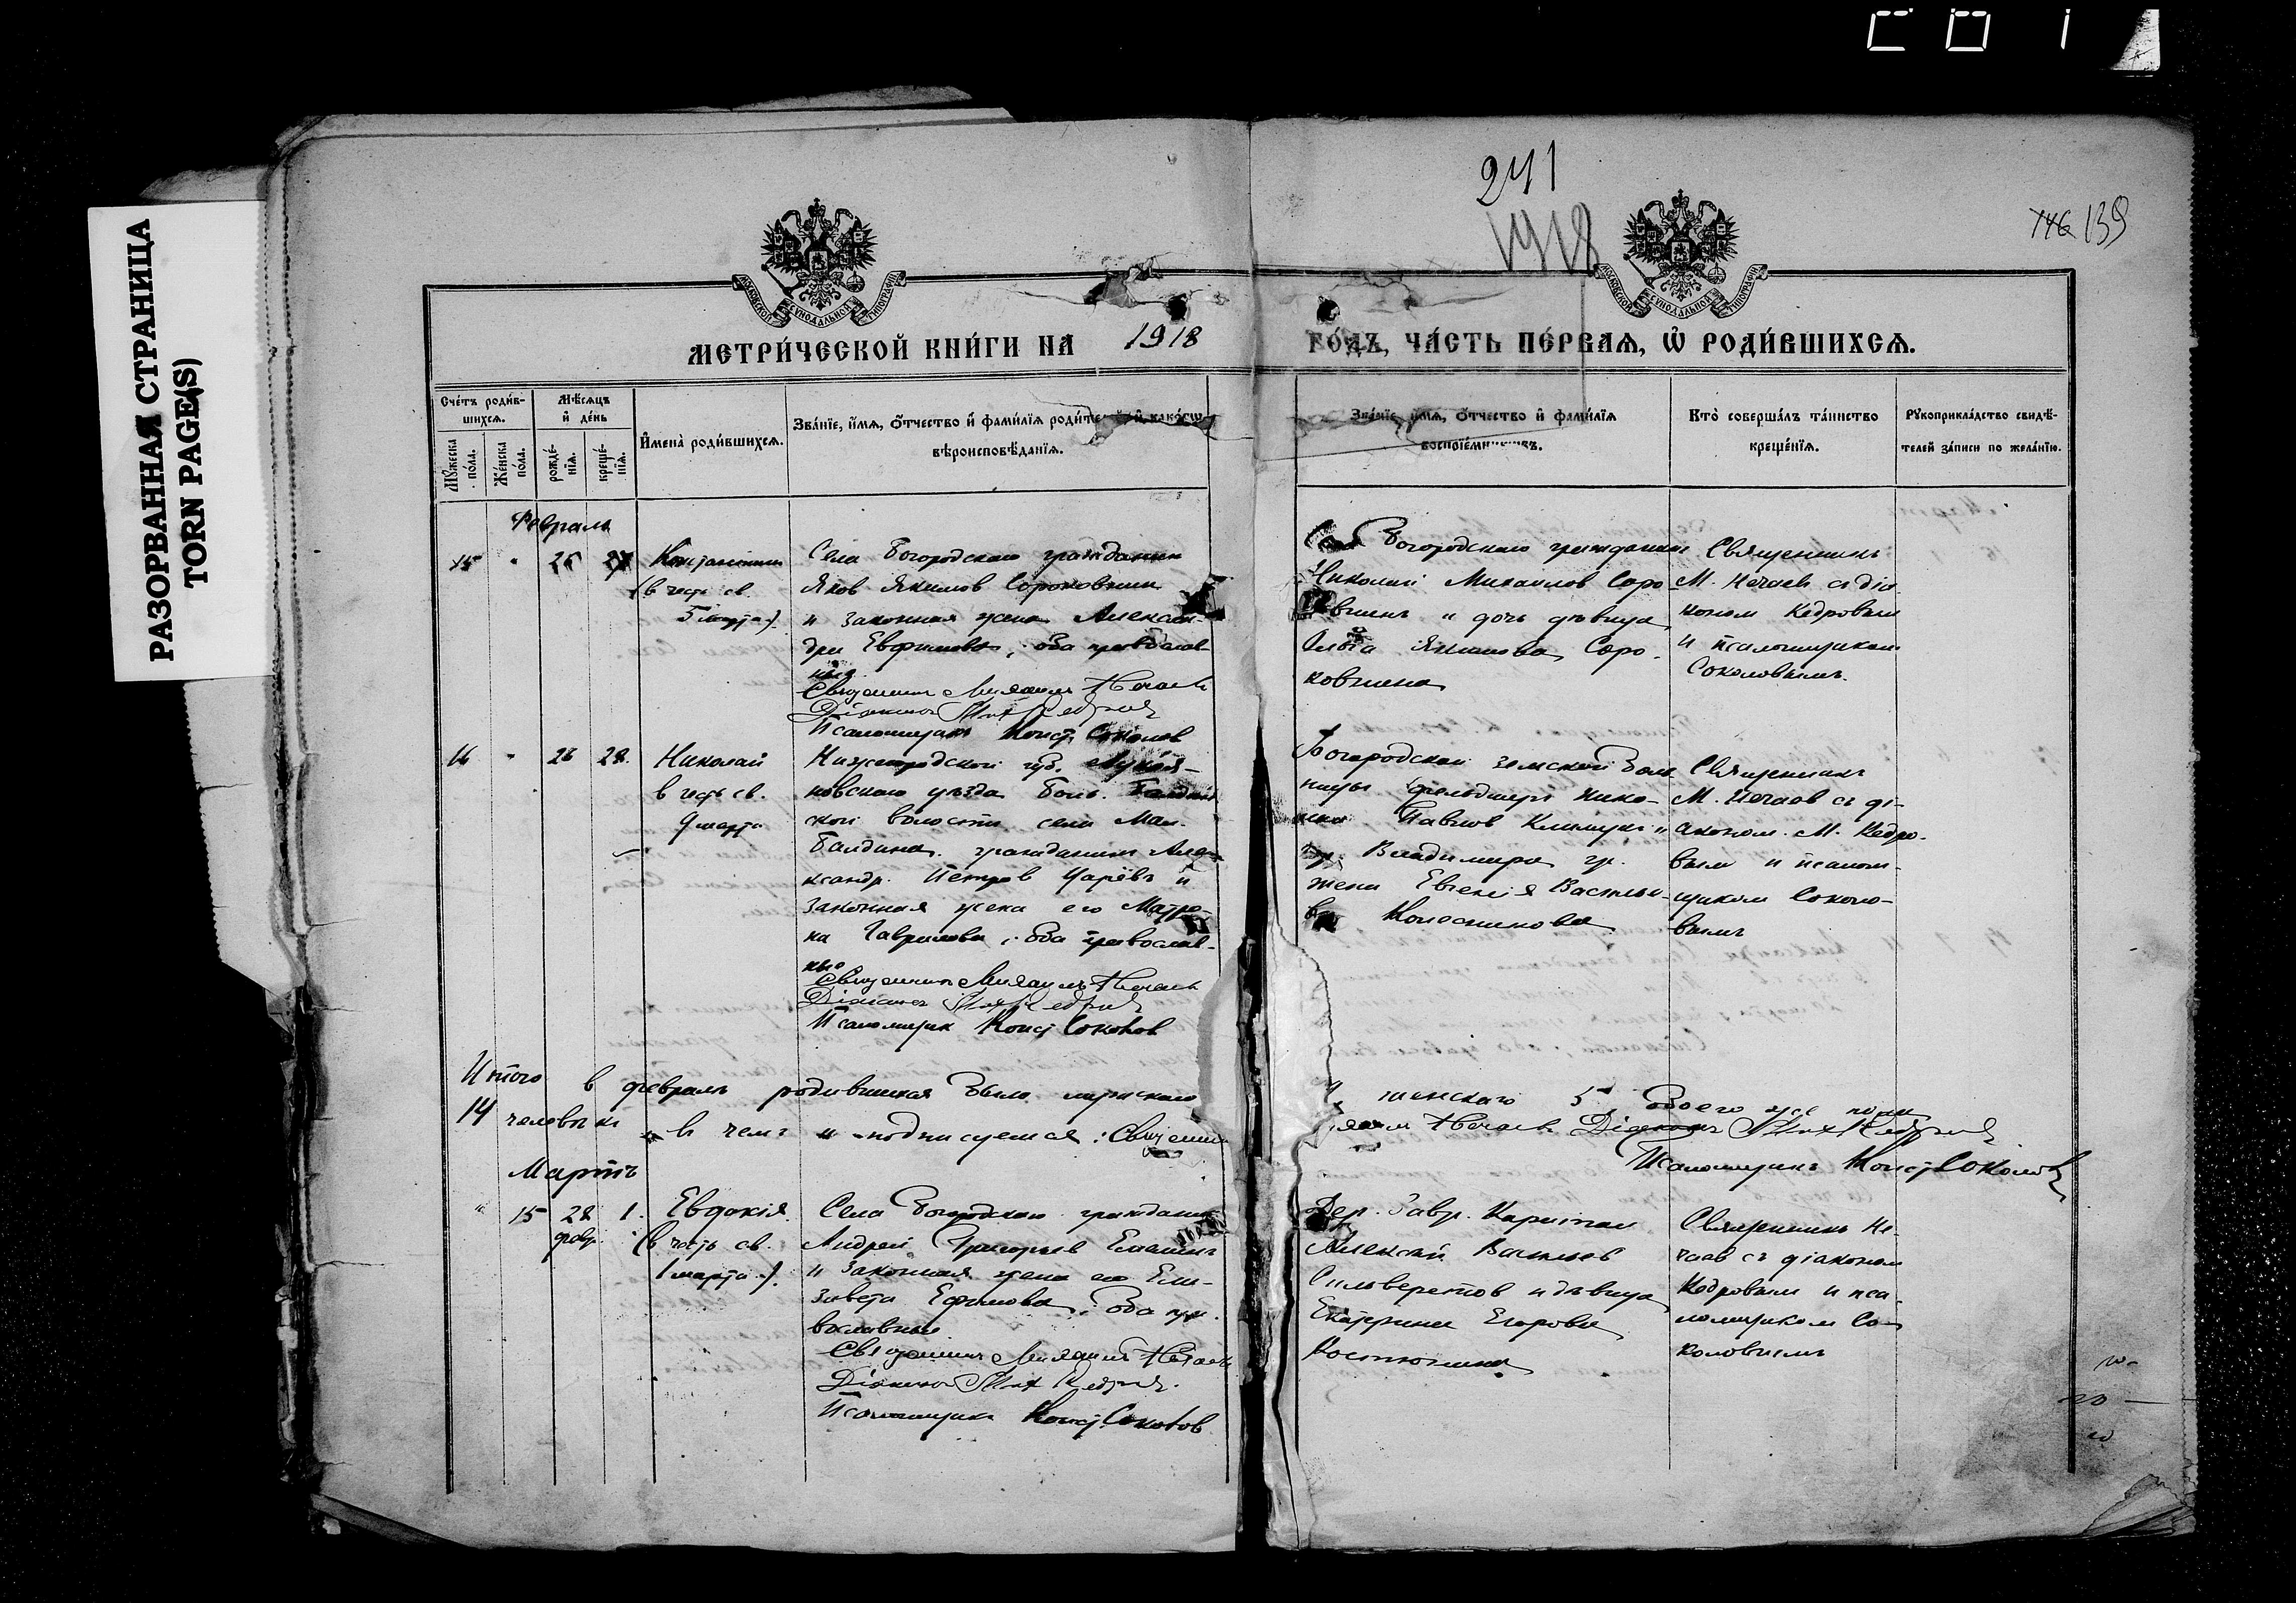 РАЗОРВАННАЯ СТРАНИЦА
TORN PAGE(S)
241
1918
146 139
МОСКОВСКОЙ СѴНОДАЛЬНОЙ ТИПОГРАФІИ
МОСКОВСКОЙ СѴНОДАЛЬНОЙ ТИПОГРАФІИ
МЕТРИ́ЧЕСКОЙ КНИ́ГИ НА 1918 ГО́ДЪ, ЧА́СТЬ ПЕ́РВАѦ, Ѡ҆ РОДИ́ВШИХСѦ.
Сче́тъ роди́в-
шихсѧ.
Мꙋ́жеска по́ла.
Же́нска по́ла.
Мѣ́сѧцъ и҆ де́нь
рожде́-нїѧ.
креще́-нїѧ.
И҆мена̀ роди́вшихсѧ.
Зва́нїе, и҆́мѧ, ѻ҆́тчество и҆ фами́лїѧ роди́те й и҆ како́гѡ
вѣроисповѣ́данїѧ.
Зва́нїе, и҆́мѧ, ѻ҆́тчество и҆ фами́лїѧ
воспрїе́мникѡвъ.
Кто̀ соверша́лъ та́инство
креще́нїѧ.
Рꙋкоприкла́дство свидѣ́-
телей за́писи по жела́нїю.
Февраль
15 " 26 27 Константин
(в честь св.
5 марта).
Села Богородскаго гражданин
Яков Якимов Сороковнин
и законная жена Алексан-
дра Евфимова, оба православ-
ные
Священник Михаил Нечаев
Діакон Мих Кедров
Псаломщик Конст. Соколов
Богородскаго гражданин
Николай Михаилов Соро-
и дочь девица
Ольга Якимова Соро-
ковнина
Священникъ
М. Нечаев съ діа-
коном Кедровым
и псаломщиком
Соколовымъ.
16 " 26 28. Николай
в честь св.
9 марта
Нижегородской губ. Лукоя-
новскаго уезда Боль. Болдин
ской волости села Мал.
Болдина гражданин Але-
ксандр Петров Царёвъ и
законная жена его Матро-
на Гаврилова, оба православ-
ные
Священник Михаил Нечаев
Діакон Мих Кедров
Псаломщик Конст Соколов
Богородской земской боль
ницы фельдшер Нико-
Павлов и
гр. Владимира гр.
жена Евгенія Василье-
ва Колесникова
Священник
М. Нечаев съ ді-
аконом М. Кедро-
вым и псалом-
щиком Соколо-
вымъ
Итого в феврале родившихся было мужскаго женскаго 5, обоего же пола
14 человекъ в чемъ и подписуемся: Священник Нечаев Діаконъ Мих Кедров
Псаломщикъ Конст Соколов
Мартъ
" 15 28 февр. 1. Евдокія
(в честь св.
1 марта).
Села Богородскаго гражданин
Андрей Григорьев
и законная жена его Ели-
завета Ефимова, оба пра-
вославные
Священник Михаил Нечаев
Діакон Мих Кедров.
Псаломщик Конст. Соколов
Дер.
Алексей Васильев
Сильверстов и девица
Екатерина Егорова
Священник Не-
чаев съ діаконом
Кедровым и пса-
ломщиком Со-
коловымъ